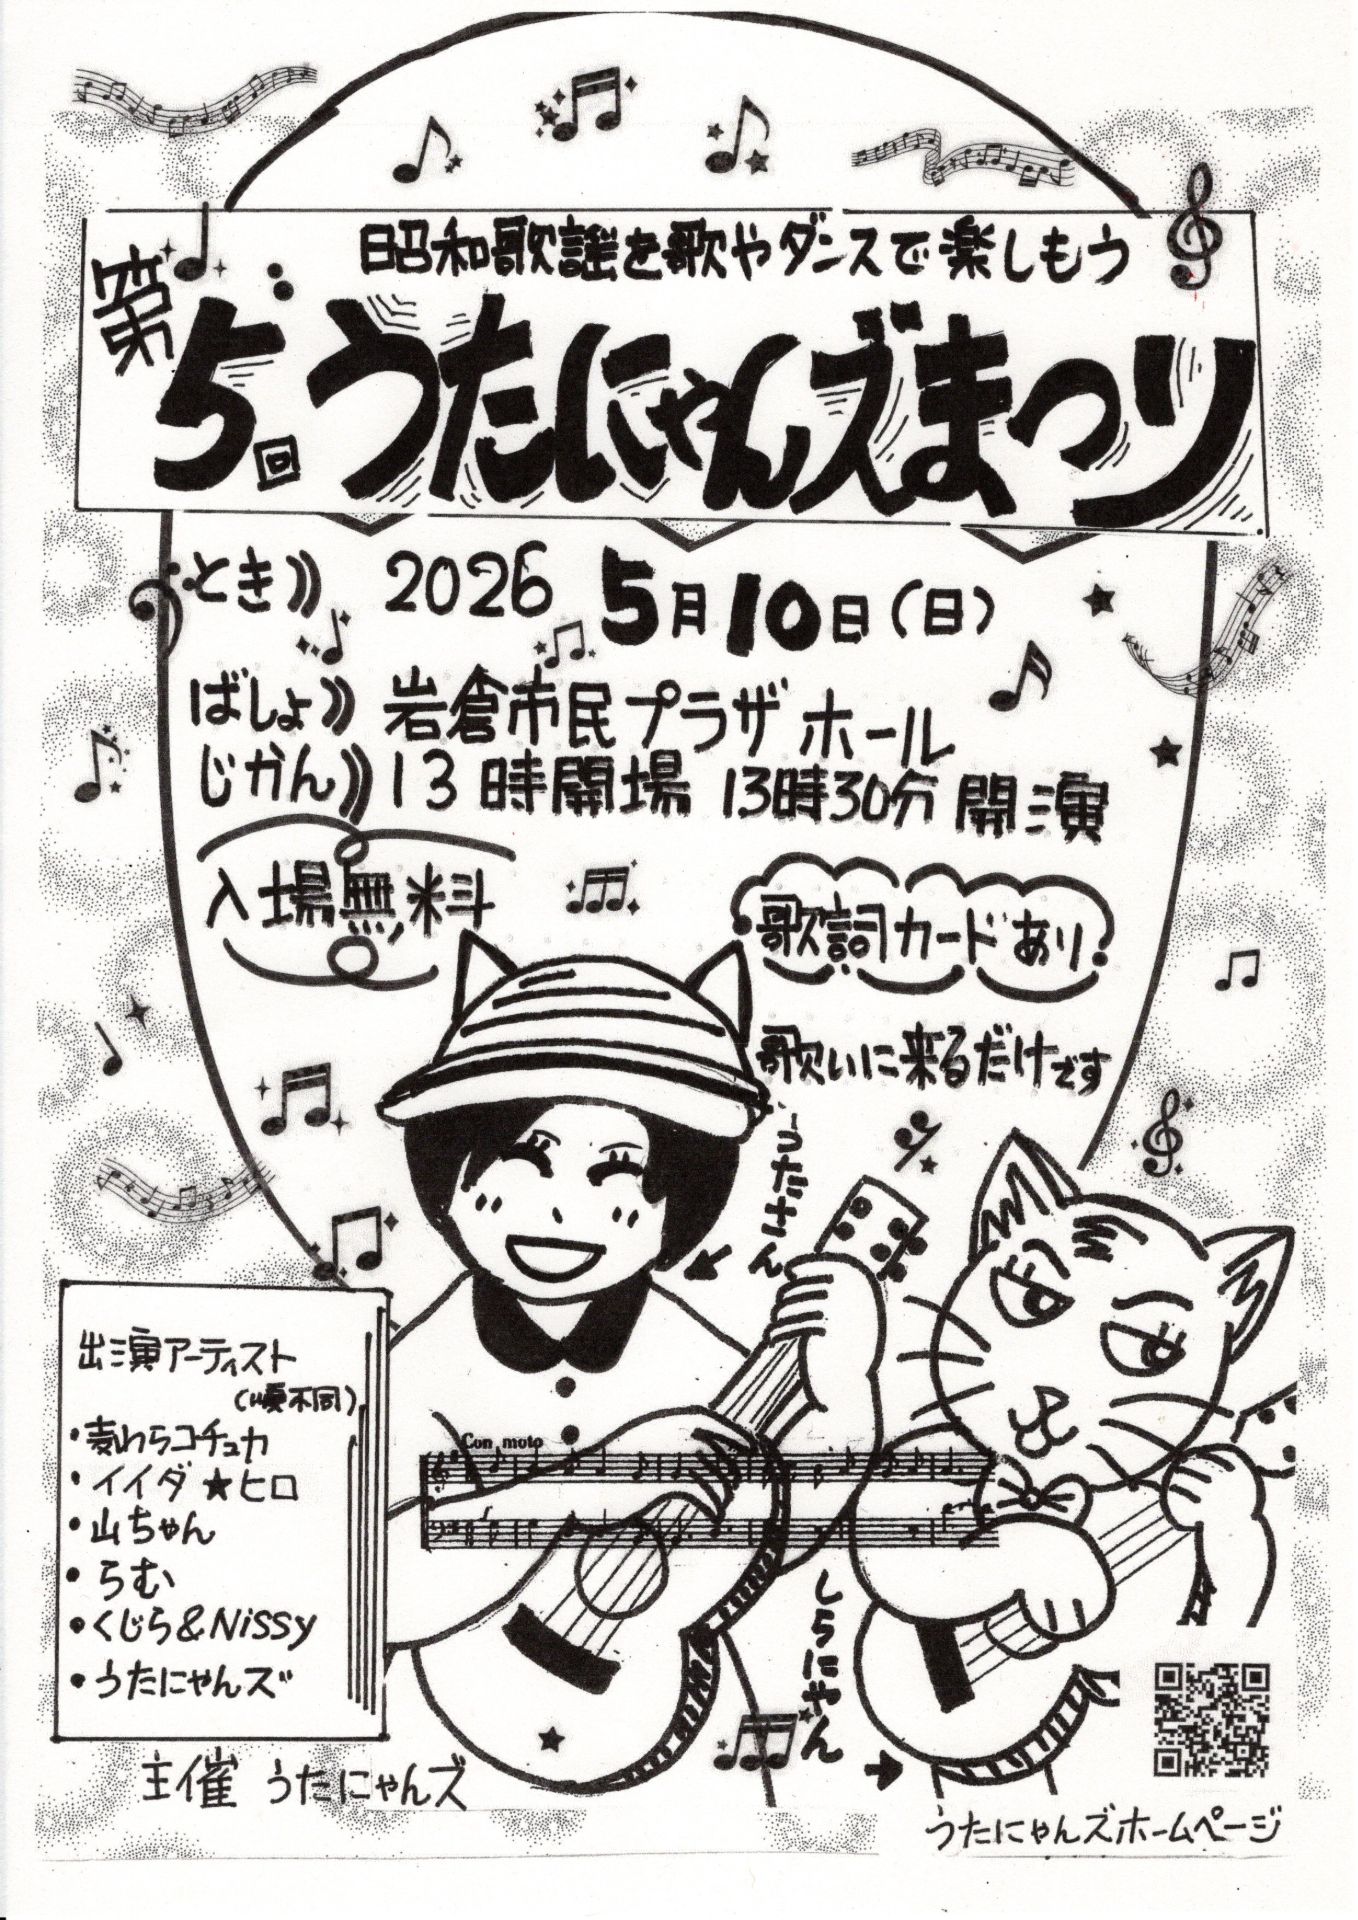 昭和歌謡を歌やダンスで楽しもう
第5回うたにゃんズまつり
とき 2026 5月10日(日)
ばしょ 岩倉市民プラザ ホール
じかん 13時開場 13時30分開演
入場無料
歌詞カードあり
歌いに来るだけです
うたさん
出演アーティスト
(順不同)
・麦わらコチュカ
・イイダ★ヒロ
・山ちゃん
・らむ
・くじら&Nissy
・うたにゃんズ
Con moto
しろにゃん
主催 うたにゃんズ
うたにゃんズホームページ